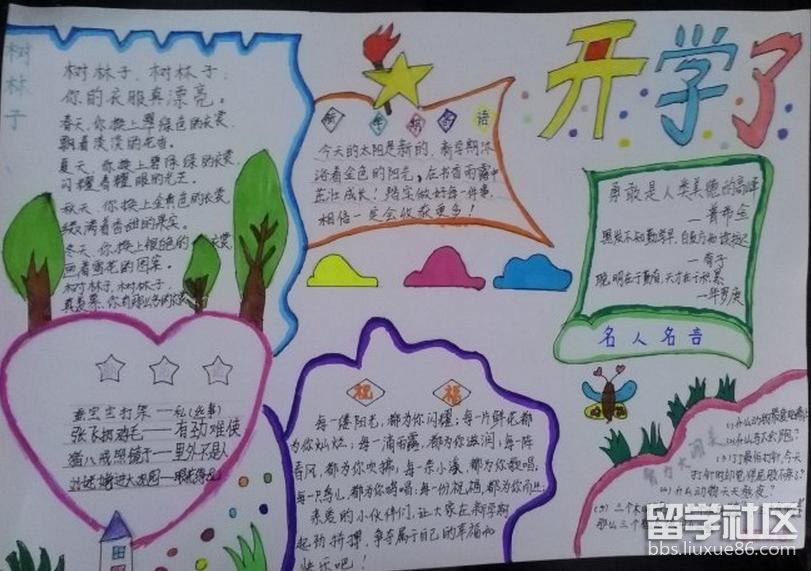 开学了
树林子
树林子，树林子，
你的衣服真漂亮。
春天，你换上翠绿色的衣裳，
飘着淡淡的花香。
夏天，你换上碧绿绿的衣裳，
闪耀着耀眼的光芒。
秋天，你换上金黄色的衣裳，
缀满着香甜的果实。
冬天，你换上银色的衣裳，
画着雪花的图案。
树林子，树林子，
新学期
语
今天的太阳是新的，新学期沐
浴着金色的阳光，在书香雨露中
茁壮成长！踏实做好每一件事，
相信一定会收获更多！
勇敢是人类美德的高峰
—普希金
黑发不知勤学早，白首方悔读书迟
聪明在于勤奋，天才在于积累
—华罗庚
名人名言
蚕宝宝打架——私(丝事)
张飞拔鸡毛——有劲难使
猪八戒照镜子——里外不是人
祝福
每一缕阳光，都为你闪耀；每一片鲜花都
为你灿烂；每一滴雨露，都为你滋润；每一阵
春风，都为你吹拂；每一条小溪，都为你歌唱；
每一只鸟儿，都为你鸣唱；每一份祝福，都为你而出；
亲爱的小伙伴们，让大家在新学期
起劲拼搏，争夺属于自己的幸福和
快乐吧！
智力大闯关
(3)打最怕打针，今天
(4)什么动物天天熬夜？
(5)三个木
那么三个
留学社区
bbs.liuxue86.com